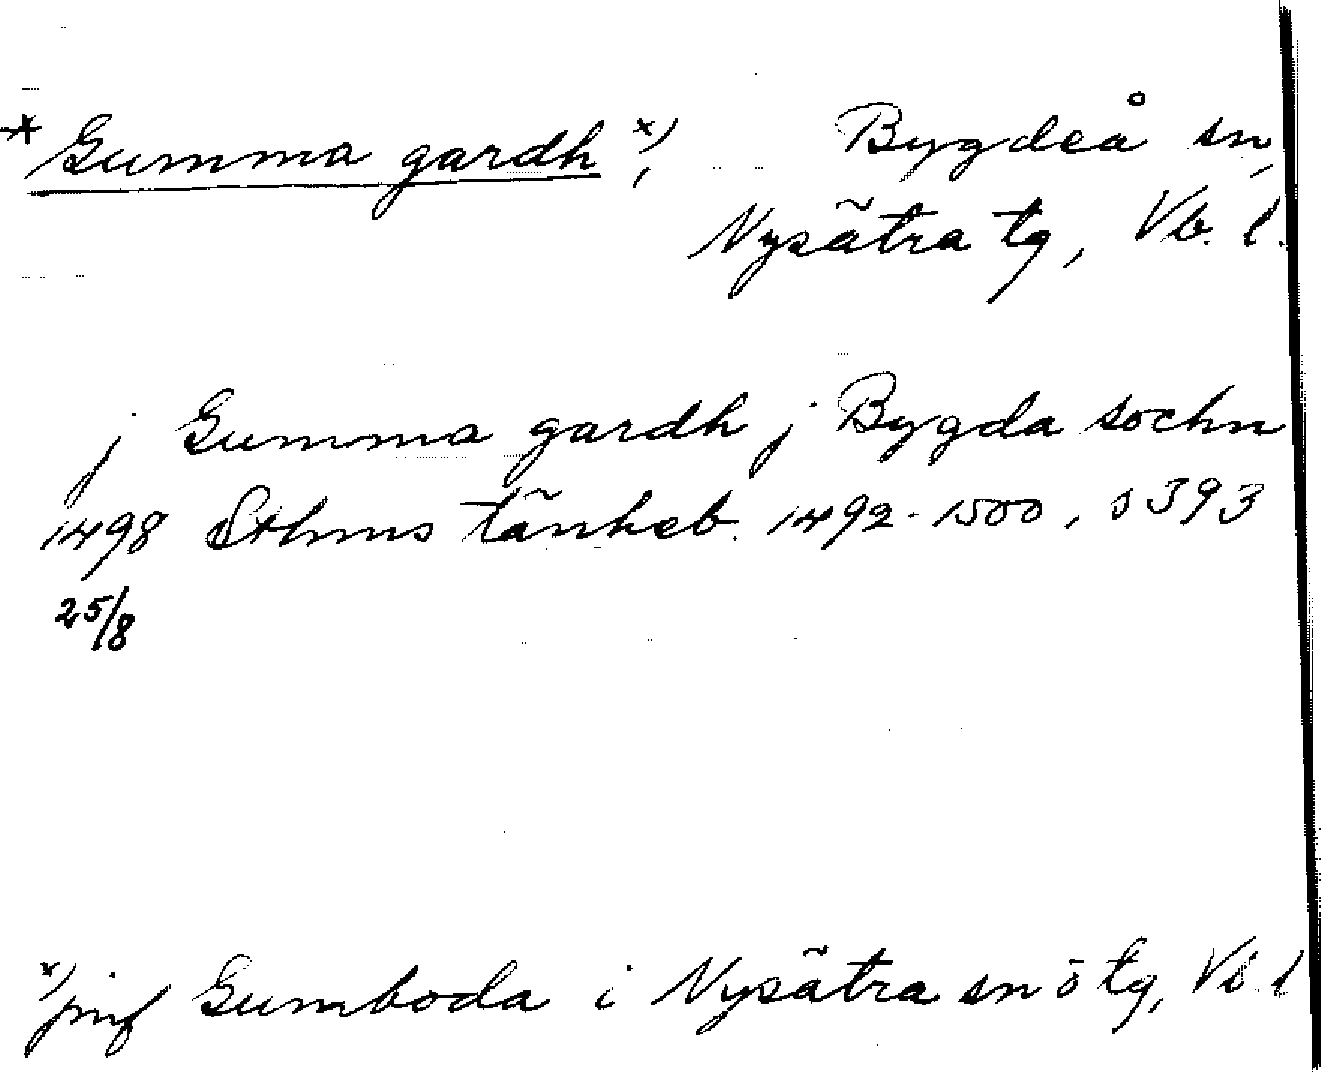 * Gumma gardh x), Bygdeå sn,
Nysätra tg, Vb. l.
j Gumma gardh j Bygda sochn
1498 Sthms tänkeb. 1492-1500, s 393
25/8
x) jmf Gumboda i Nysätra sn o tg, Vb. l